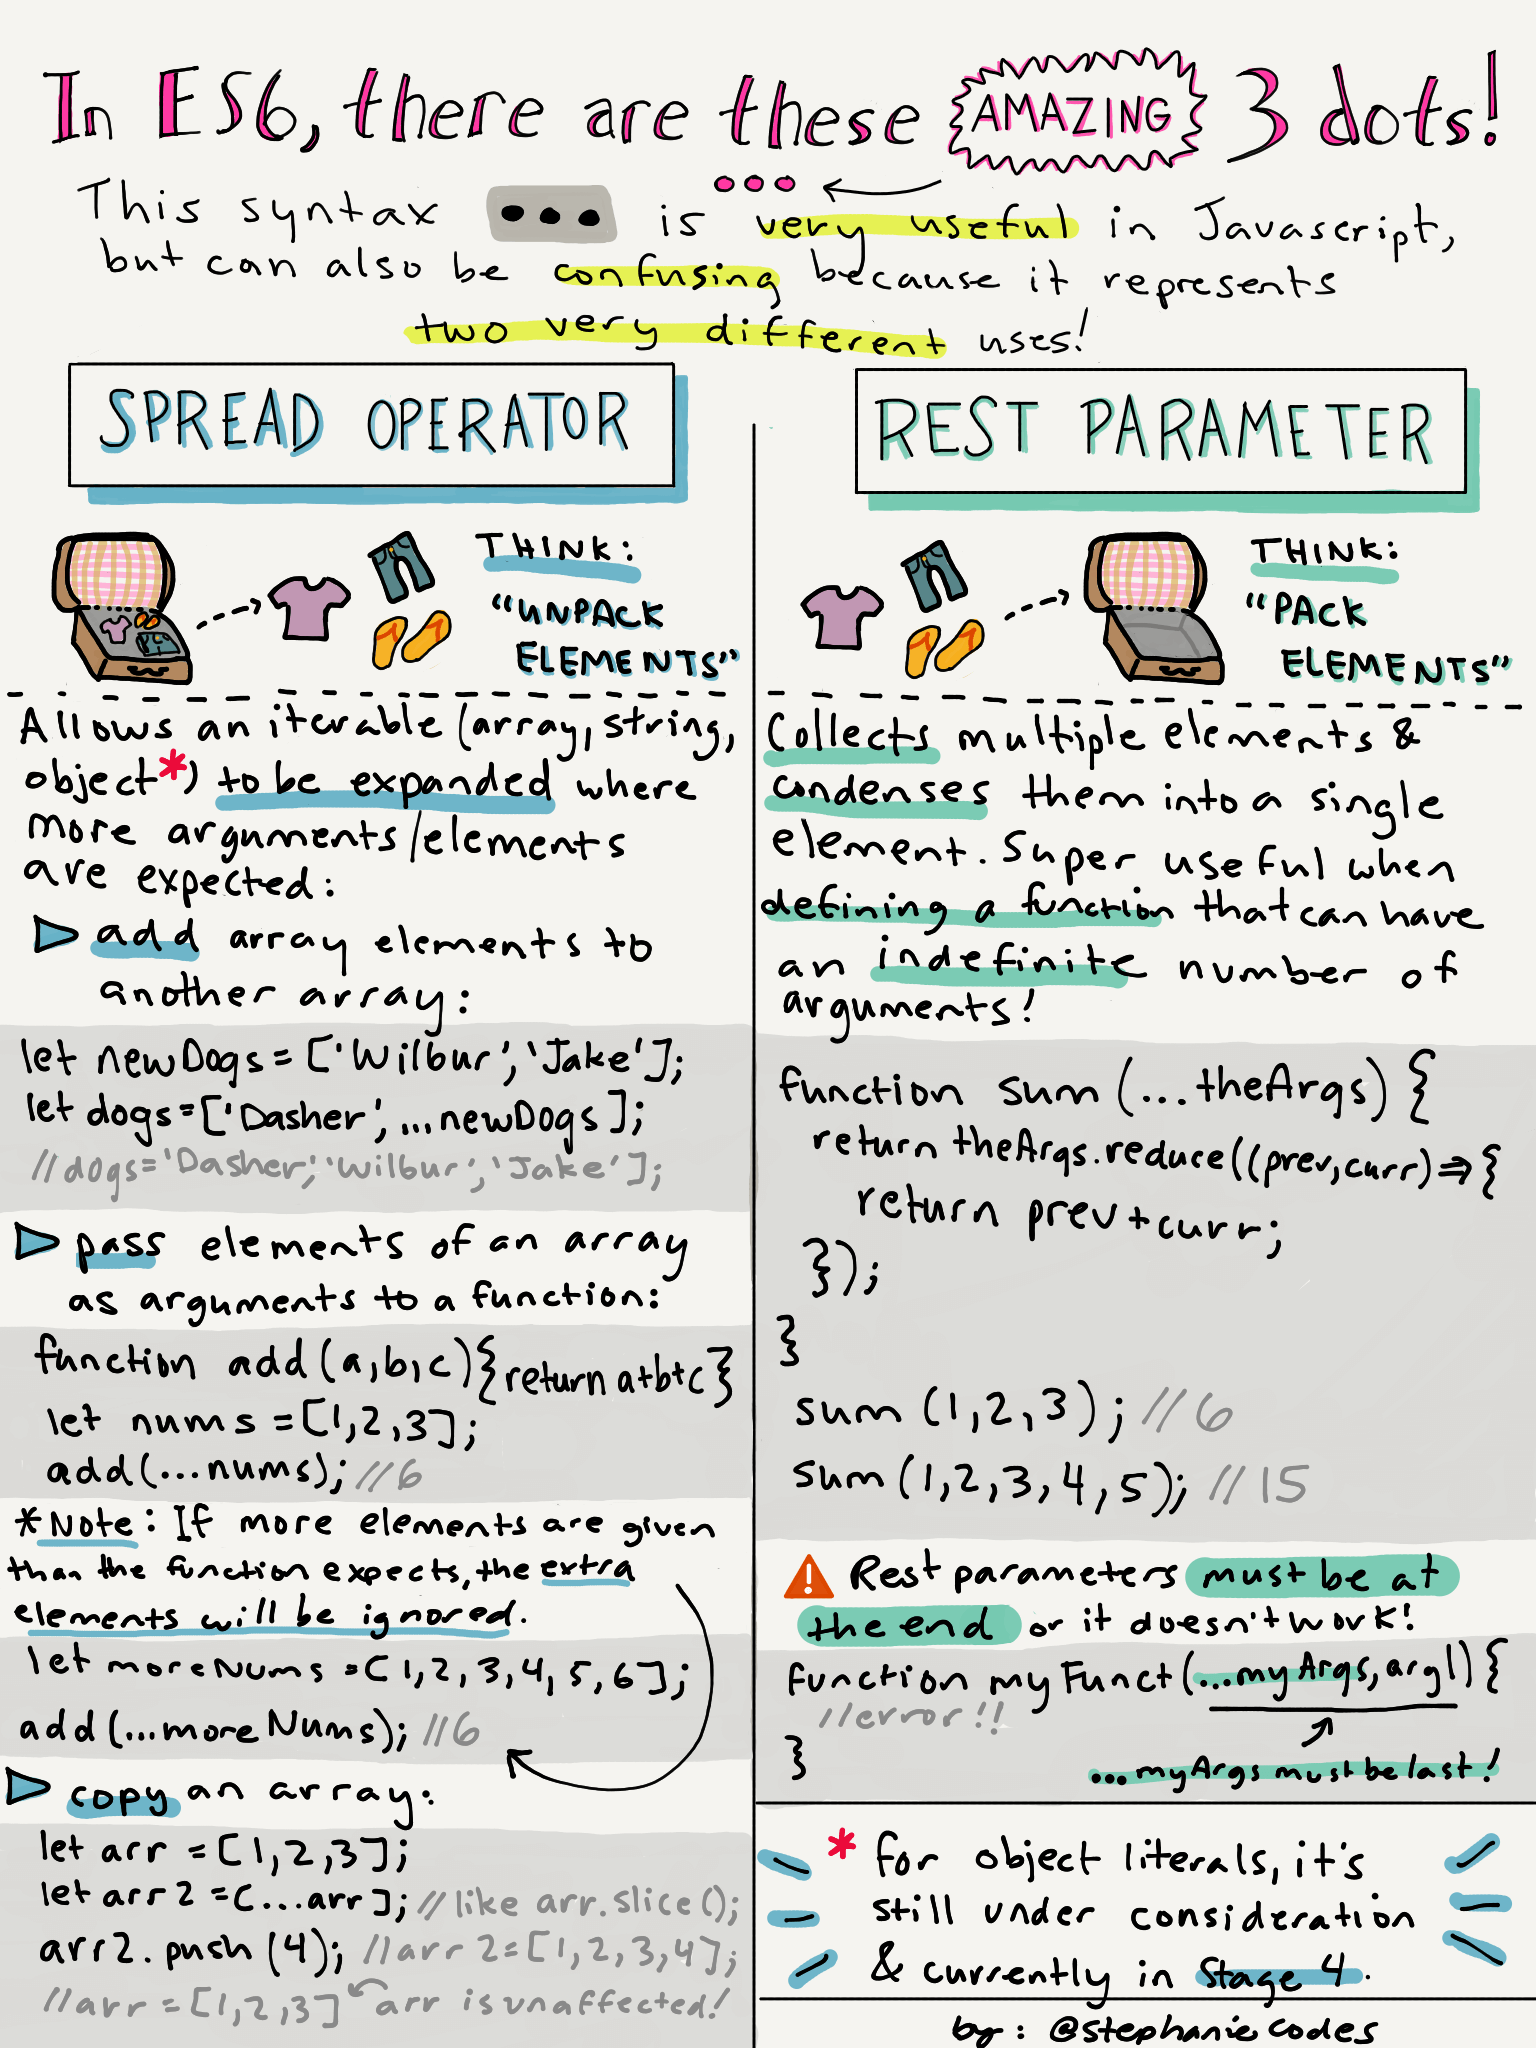 In ES6, there are these AMAZING 3 dots!
...
This syntax ... is very useful in Javascript,
but can also be confusing because it represents
two very different uses!
SPREAD OPERATOR
THINK:
"UNPACK
ELEMENTS"
Allows an iterable (array, string,
object*) to be expanded where
more arguments/elements
are expected:
add array elements to
another array:
let newDogs = ['Wilbur', 'Jake'];
let dogs = ['Dasher', ...newDogs];
//dogs='Dasher', 'Wilbur', 'Jake'];
pass elements of an array
as arguments to a function:
function add(a,b,c){return a+b+c}
let nums = [1,2,3];
add(...nums); //6
*Note: If more elements are given
than the function expects, the extra
elements will be ignored.
let moreNums = [1,2,3,4,5,6];
add(...moreNums); //6
copy an array:
let arr = [1,2,3];
let arr2 = [...arr]; //like arr.slice();
arr2.push(4); //arr2=[1,2,3,4];
//arr = [1,2,3] arr is unaffected!
REST PARAMETER
THINK:
"PACK
ELEMENTS"
Collects multiple elements &
condenses them into a single
element. Super useful when
defining a function that can have
an indefinite number of
arguments!
function sum (...theArgs) {
return theArgs.reduce((prev,curr)=>{
return prev+curr;
});
}
sum (1,2,3); //6
sum (1,2,3,4,5); //15
! Rest parameters must be at
the end or it doesn't work!
function myFunct(...myArgs, arg1) {
//error!!
}
...myArgs must be last!
* for object literals, it's
still under consideration
& currently in Stage 4.
by: @stephaniecodes